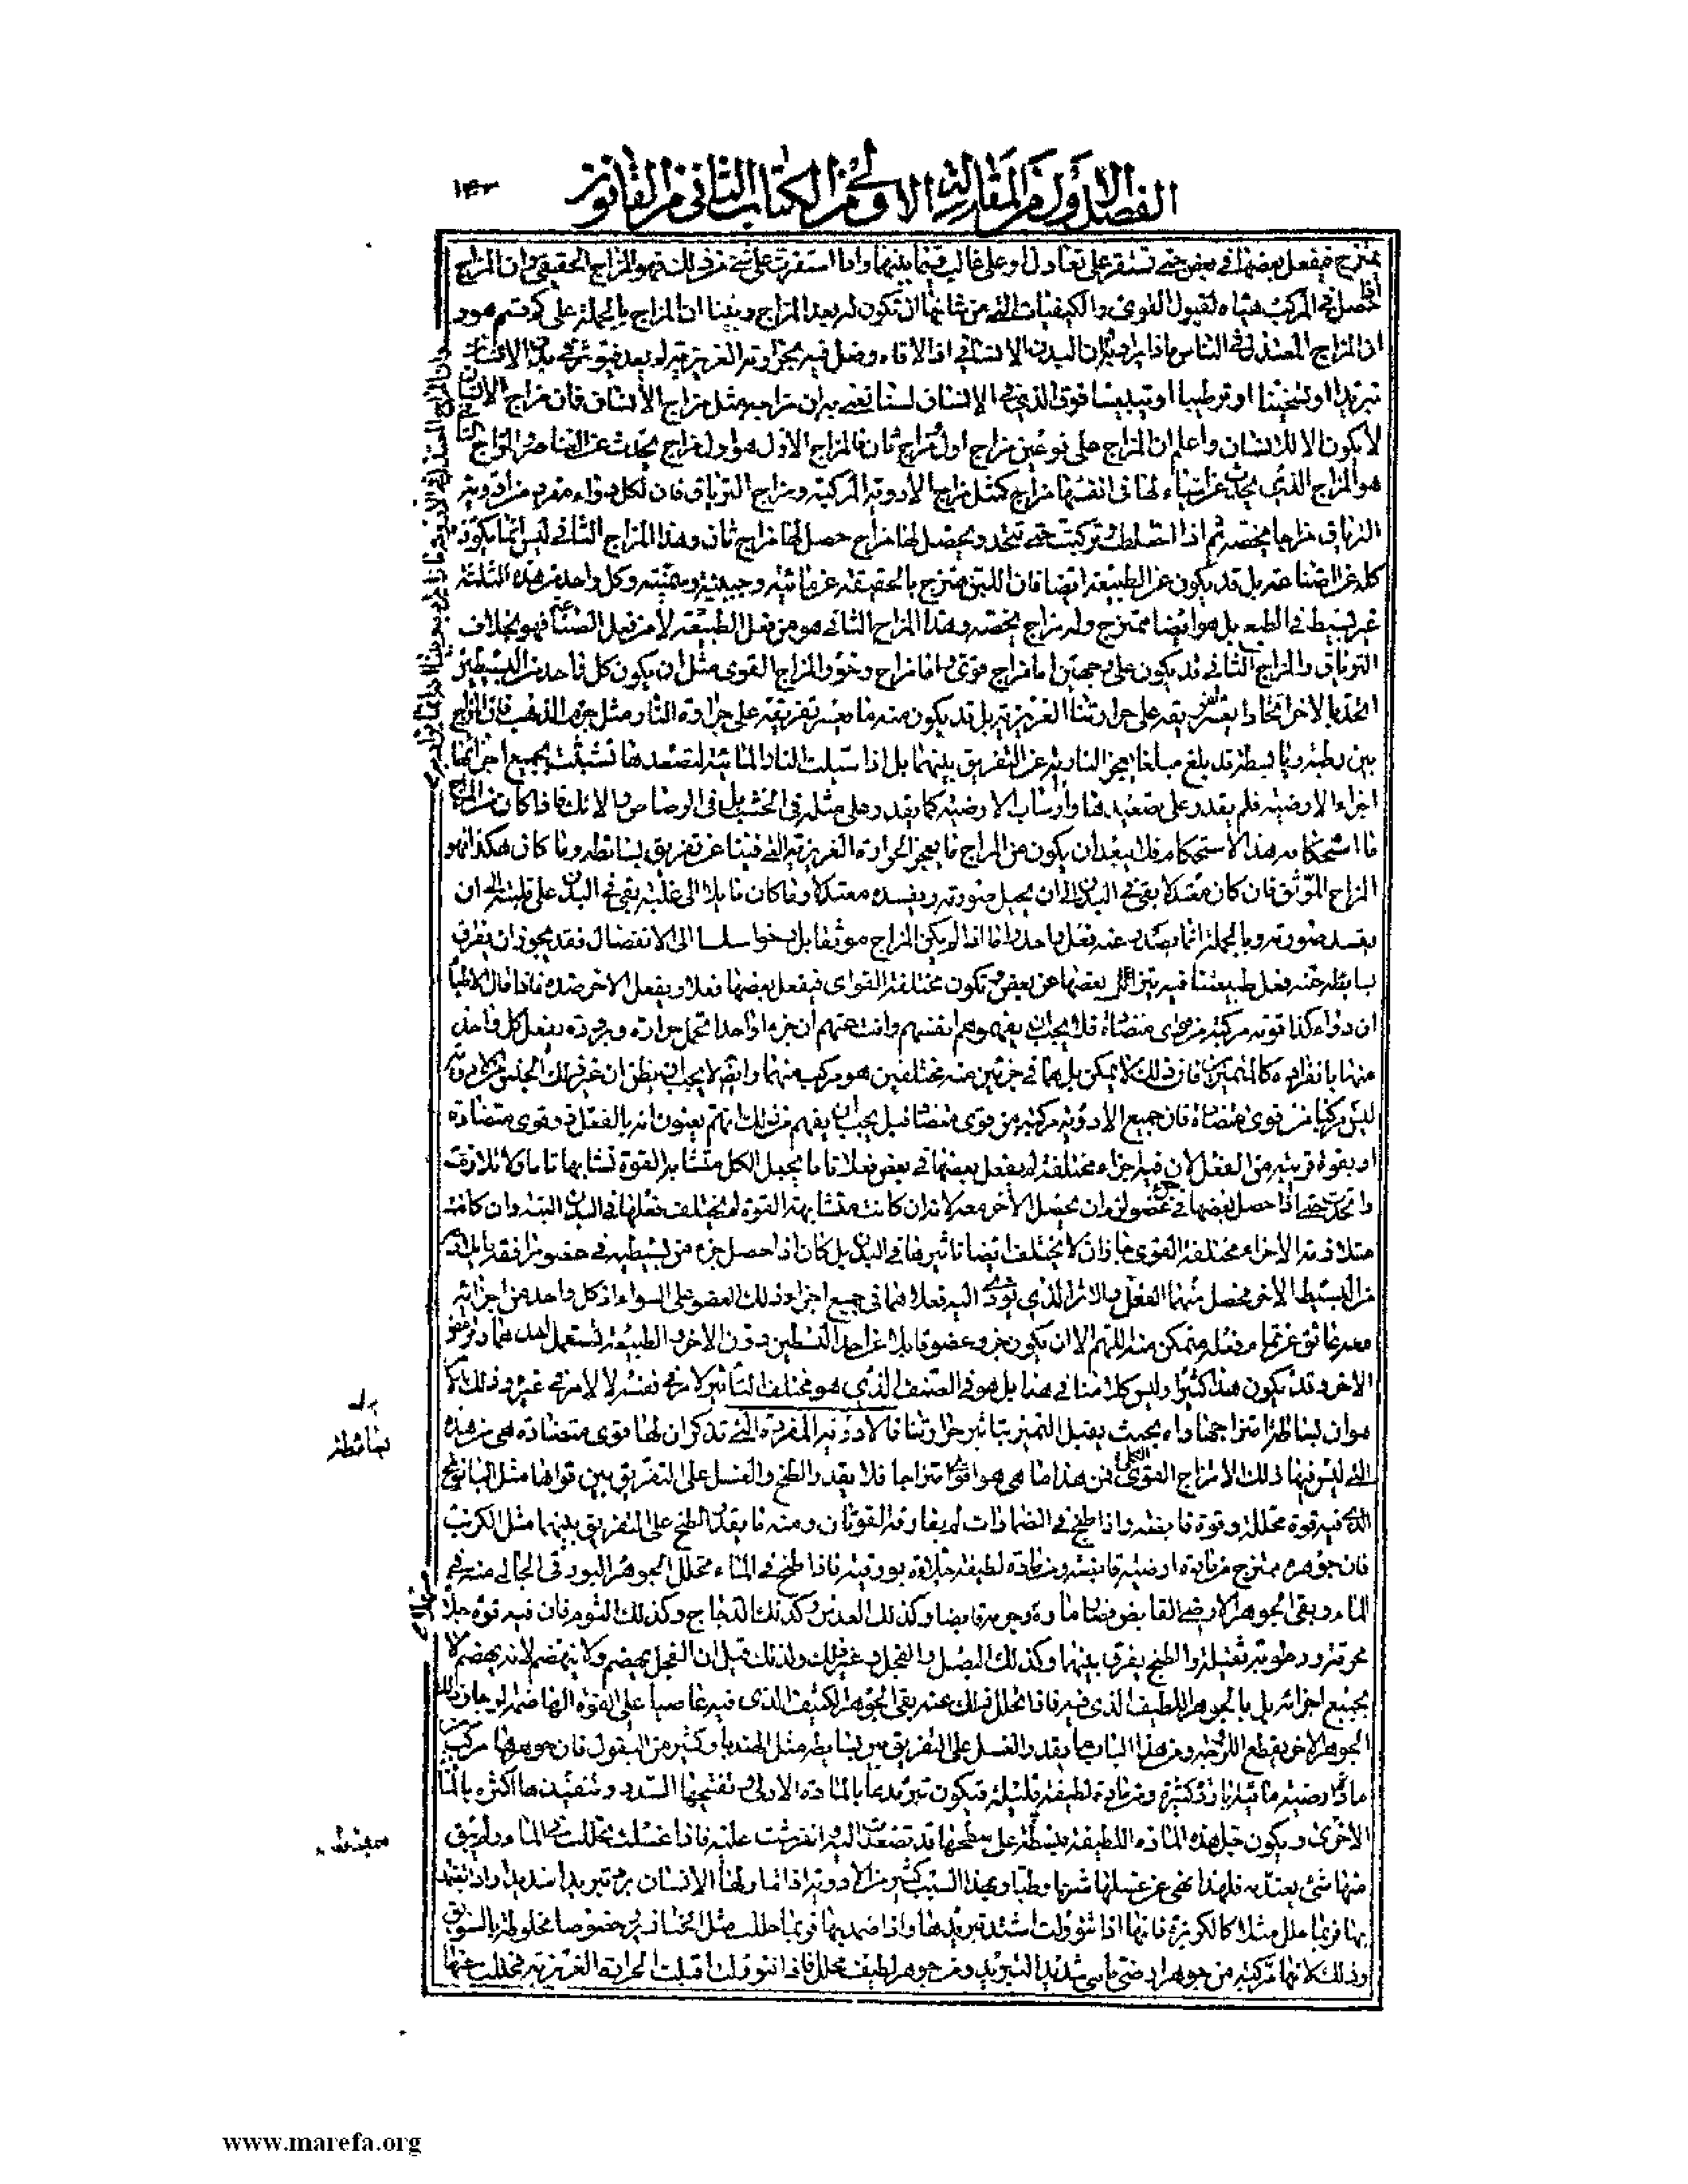 الفصل الاول من المقالة الاولى من الكتاب الثانى من القانون
١٤٢
تمتزج فيفعل بعضها فى بعض حتى تستقر على تعادل او على غالب فيما بينها واذا استقرت على شئ من ذلك فهو المزاج الحقيقى وان المزاج
اذا حصل فى المركب هيأه لقبول القوى والكيفيات التى من شانها ان تكون له بعد المزاج وبينا ان المزاج بالجملة على كم قسم هو و
ان المزاج المعتدل فى الناس ماذا يراد به ان البدن الانسانى اذا لاقاه وفعل فيه بحرارته الغريزية لم يبعد ان يؤثر فى بدن الانسان
تبريدا او تسخينا او ترطيبا او تيبيسا فوق الذى فى الانسان لسنا نعنى به ان مزاجه مثل مزاج الانسان فان مزاج الانسان
لا يكون الا للانسان واعلم ان المزاج على نوعين مزاج اول ومزاج ثان فالمزاج الاول هو اول مزاج يحدث عن العناصر والمزاج الثانى
هو المزاج الذى يحدث عن اشياء لها فى انفسها مزاج كمثل مزاج الادوية المركبة ومزاج الترياق فان لكل دواء مفرد من ادوية
الترياق مزاجا يخصه ثم اذا اختلطت وتركبت حتى تتحد ويحصل لها مزاج حصل لها مزاج ثان وهذا المزاج الثانى ليس انما يكون
كله عن الصناعة بل قد يكون عن الطبيعة ايضا فان اللبن ممتزج بالحقيقة عن مائية وجبنية وسمنية وكل واحد من هذه الثلثة
غير بسيط فى الطبع بل هو ايضا ممتزج وله مزاج يخصه وهذا المزاج الثانى هو من فعل الطبيعة لا من فعل الصناعة فهو بخلاف
الترياق والمزاج الثانى قد يكون على وجهين اما مزاج قوى واما مزاج رخو والمزاج القوى مثل ان يكون كل واحد من البسيطين
اتحد بالاخر اتحادا يعسر تفريقه على حرارتنا الغريزية بل قد يكون منه ما يعسر تفريقه على حرارة النار مثل جرم الذهب فان المزاج
بين رطبه ويابسه قد بلغ مبلغا يعجز النارية عن التفريق بينهما بل اذا سيلت النار المائية لتصعدها تشبثت بجميع اجزائها
اجزاء الارضية فلم يقدر على تصعيدها وارساب الارضية كما يقدر على مثله فى الخشب بل فى الرصاص والانك فاذا كان من المزاج
ما استحكامه هذا الاستحكام فلا يبعد ان يكون من المزاج ما يعجز الحرارة الغريزية التى فينا عن تفريق بسائطه وما كان هكذا فهو
المزاج الموثق فان كان معتدلا بقى فى البدن الى ان يحيل صورته ويفسده معتدلا وما كان مائلا الى غلبة بقى فى البدن على غلبته الى ان
يفسد صورته وبالجملة انما يصدر عنه فعل واحد واما اذا لم يكن المزاج موثقا بل رخوا سلسا الى الانفصال فقد يجوز ان يفترق
بسائطه عند فعل طبيعتنا فيه وتتزايل بعضها عن بعض وتكون مختلفة القوى فيفعل بعضها فعلا ويفعل الاخر ضده فاذا قال الاطباء
ان دواء كذا قوته مركبة من قوى متضادة فلا يجب ان يفهم هم انفسهم وانت عنهم ان جزءا واحدا يحمل حرارة وبرودة يفعل كل واحد
منهما بانفراده كالمتميزين فان ذلك لا يمكن بل هما فى جزئين منه مختلفين هو مركب منهما وايضا لا يجب ان يظن ان غير ذلك الجنس من الادوية
ليس مركبا من قوى متضادة فان جميع الادوية مركبة من قوى متضادة بل يجب ان يفهم من ذلك انهم يعنون انه بالفعل ذو قوى متضادة
او بقوة قريبة من الفعل لان فيه اجزاء مختلفة لم يفعل بعضها فى بعض فعلا تاما يجعل الكل متشابه القوة تشابها تاما ولا تلازمت
واتحدت حتى اذا حصل بعضها فى جزء عضو لزم ان يحصل الاخر معه لانه ان كانت متشابهة القوة لم يختلف فعلها فى البدن البتة وان كانت
متلازمة الاجزاء مختلفة القوى جاز ان لا يختلف ايضا تاثيرها فى البدن بل كان اذا حصل جزء من بسيط فى عضو وافقه ما يلازمه
من البسيط الاخر فحصل منهما الفعل والاثر الذى يؤدى اليه فعلاهما فى جميع اجزاء ذلك العضو على السواء اذ كل واحد من اجزائه
معه عائق عن تمام فعله متمكن منه اللهم الا ان يكون جزء عضو قابلا عن احد البسيطين دون الاخر او الطبيعة تستعمل احدهما وترفض
الاخر وقد يكون هذا كثيرا وليس كلامنا فى هذا بل هو فى الصنف الذى هو مختلف التاثير لامر فى نفسه لا لامر فى غيره وذلك الامر
هو ان بسائطه امتزاجها واه بحيث يقبل التميز بتاثير حرارتنا فالادوية المفردة التى قد ذكر ان لها قوى متضادة هى من هذه
التى ليس فيها ذلك الامتزاج القوى الكلى فمن هذا ما هو اقوى امتزاجا فلا يقدر الطبخ والغسل على التفريق بين قواها مثل البابونج
الذى فيه قوة محللة وقوة قابضة واذا طبخ فى الضمادات لم يفارقه القوتان ومنه ما يقدر الطبخ على التفريق بينهما مثل الكرنب
فان جوهره ممتزج من مادة ارضية قابضة ومن مادة لطيفة جلاءة بورقية فاذا طبخ فى الماء تحلل الجوهر البورقى الجالى منه فى
الماء وبقى الجوهر الارضى القابض فصار ماؤه وجرمه قابضا وكذلك العدس وكذلك الدجاج وكذلك الثوم فان فيه قوة جلاءة
محرقة ورطوبة ثقيلة والطبخ يفرق بينهما وكذلك البصل والفجل وغير ذلك ولذلك قيل ان الفجل يهضم ولا ينهضم لانه يهضم لا
بجميع اجزائه بل بالجوهر اللطيف الذى فيه فاذا تحلل ذلك عنه بقى الجوهر الكثيف الذى فيه عاصيا على القوة الهاضمة لزجا وذلك
الجوهر الاخر يقطع اللزوجة ومن هذا الباب ما يقدر الغسل على التفريق بين بسائطه مثل الهندبا وكثير من البقول فان جوهرها مركب
من مادة ارضية مائية باردة كثيرة ومن مادة لطيفة قليلة فيكون تبريدها بالمادة الاولى وتفتيحها السدد وتنفيذها اكثره بالمادة
الاخرى ويكون جل هذه المادة اللطيفة منبسطة على سطحها قد تصعدت اليه وانفرشت عليه فاذا غسلت تحللت فى الماء ولم يبق
منها شئ يعتد به فلهذا نهى عن غسلها شرعا وطبا وبهذا السبب كثير من الادوية اذا تناولها الانسان برد تبريدا شديدا واذا ضمد
بها فربما حلل مثلا كالكزبرة فانها اذا تنوولت اشتد تبريدها واذا ضمد بها فربما حللت مثل الخنازير خصوصا مخلوطة بالسويق
وذلك لانها مركبة من جوهر ارضى مائى شديد التبريد ومن جوهر لطيف محلل فاذا تنوولت اقبلت الحرارة الغريزية فحللت عنها
www.marefa.org